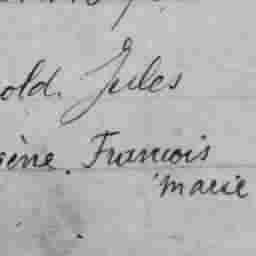 old. Jules
ène. Francois
marie